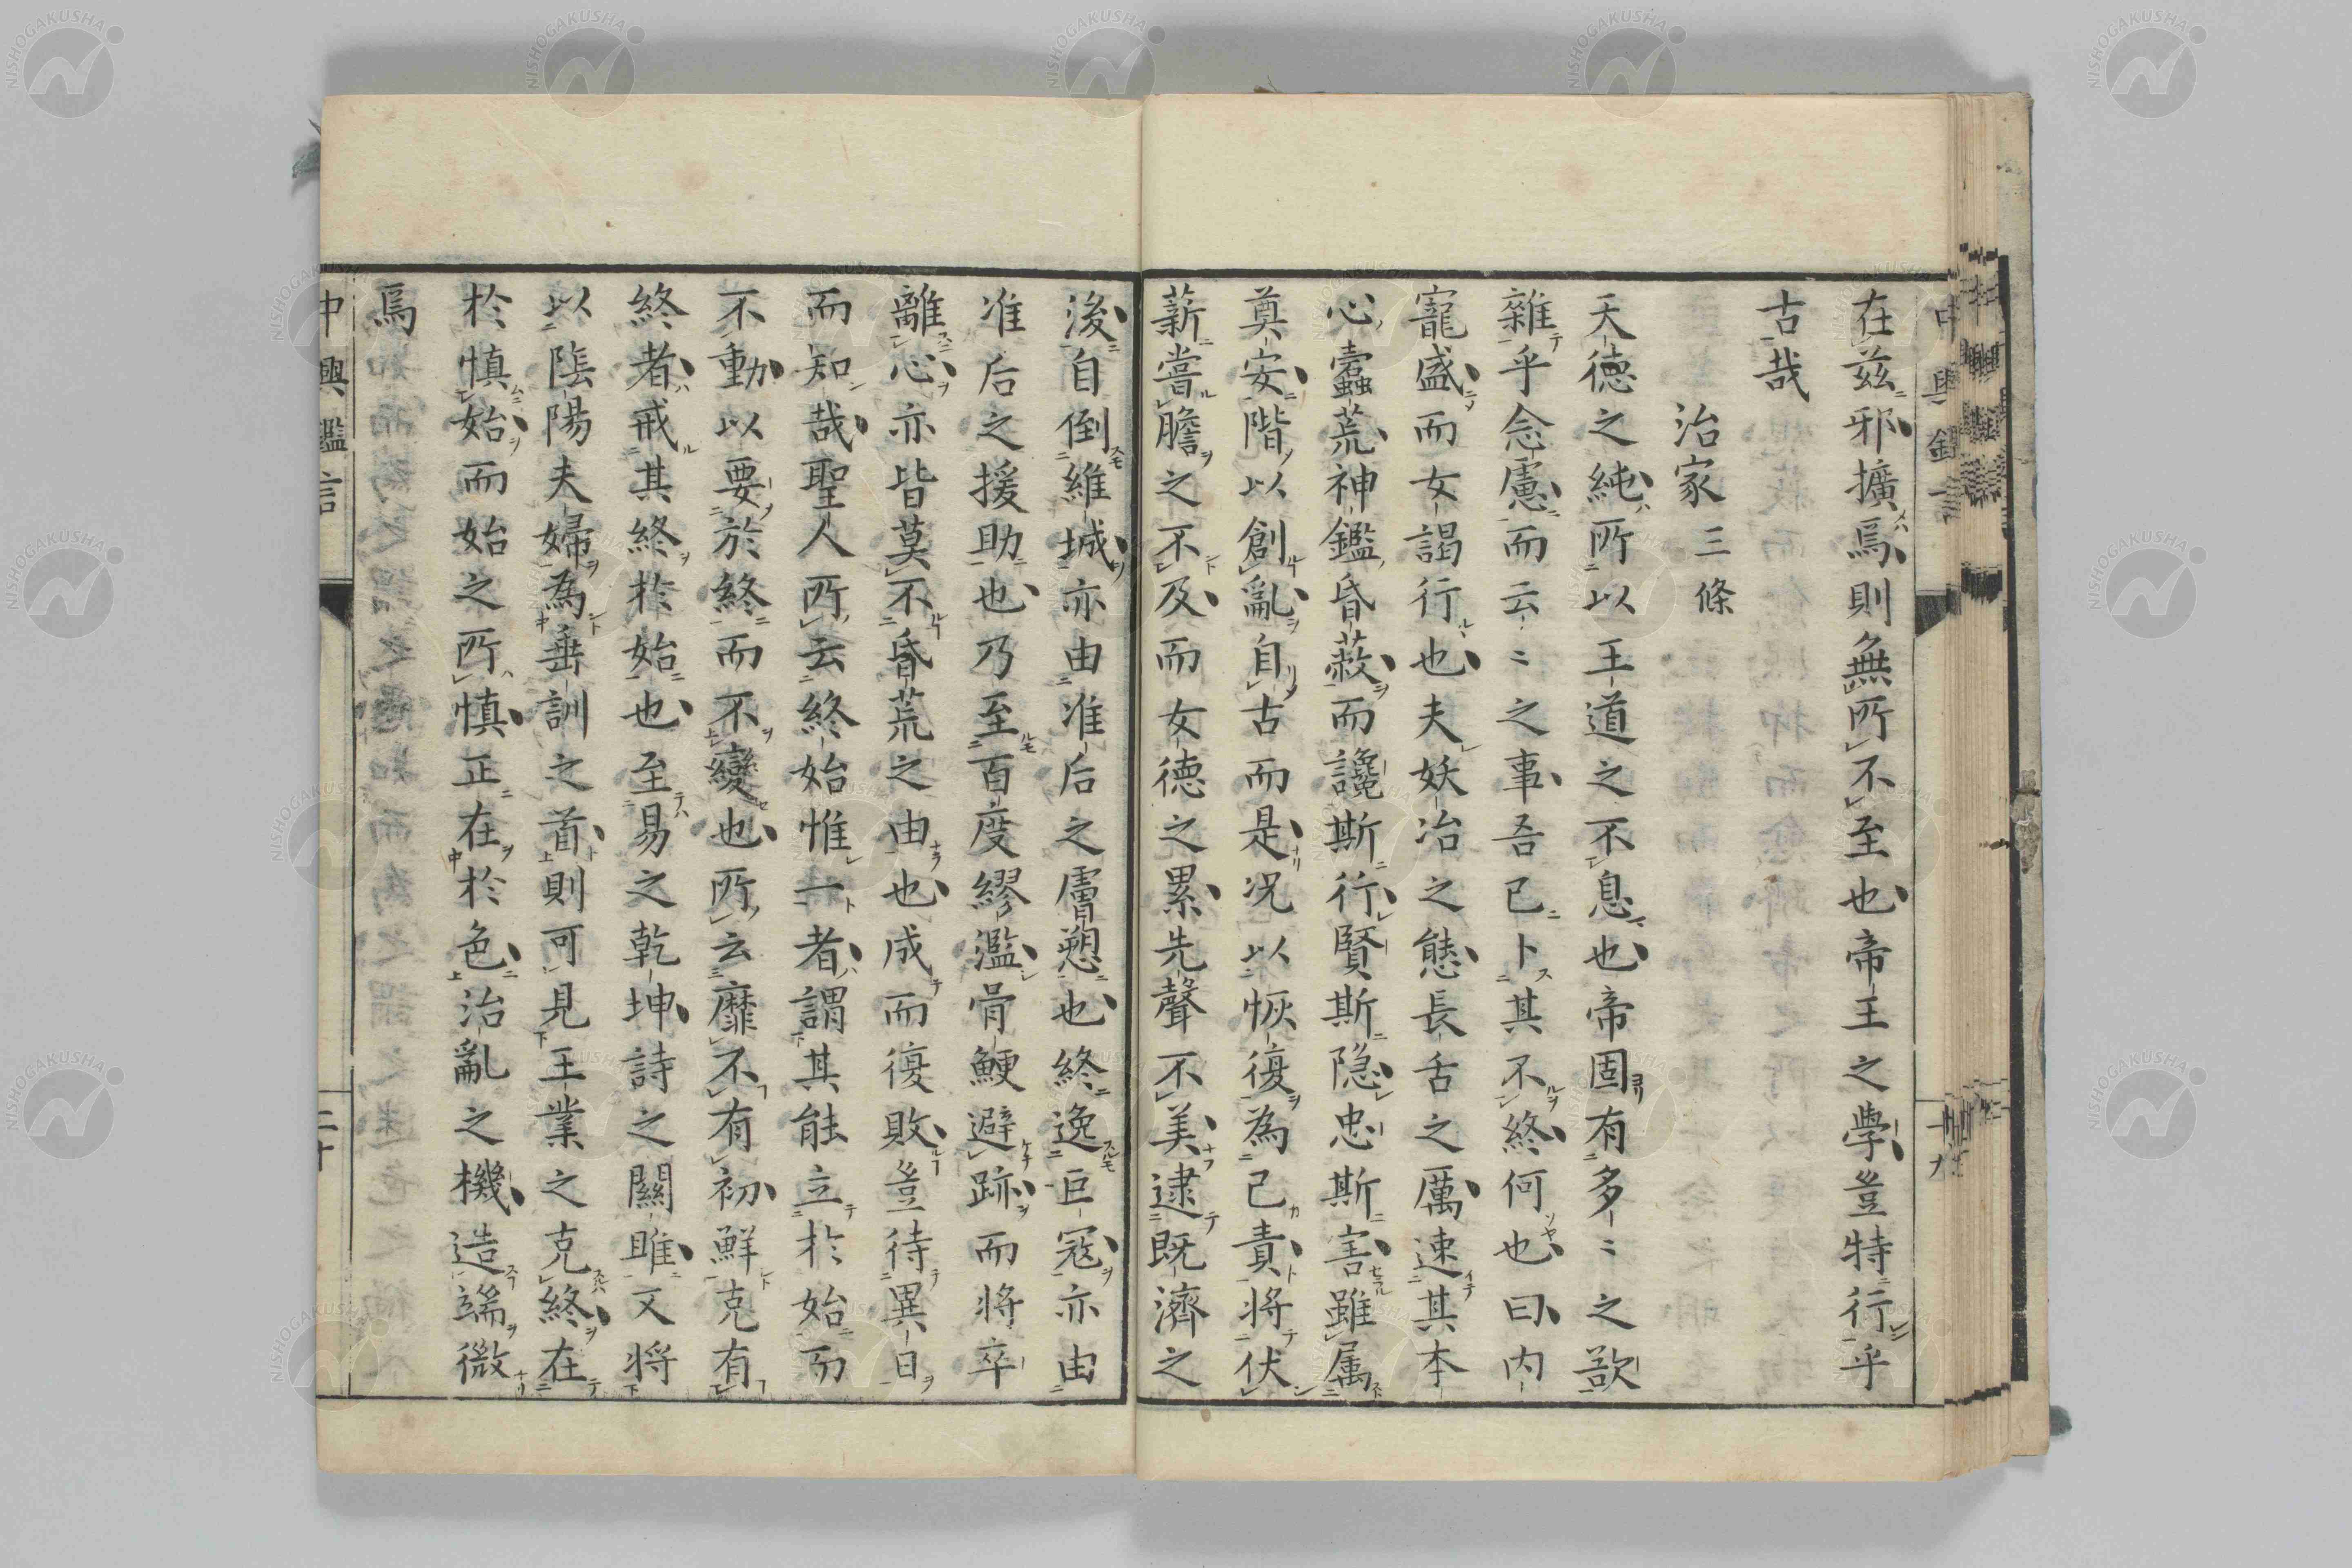 在茲邪擴焉則無所不至也帝王之學豈特行乎
古哉
治家三條
天德之純所以王道之不息也帝固有多〻之欲
雜乎念慮而云〻之事吾已卜其不終何也曰内
寵盛而女謁行也夫妖冶之態長舌之厲速其本
心蠹荒神鑑昏蔽而讒斯行賢斯隐忠斯害雖属
奠安階以創亂自古而是况以恢復為己責将伏
薪嘗膽之不及而女徳之累先聲不美逮既濟之
後自倒維城亦由准后之膚愬也終逸巨寇亦由
准后之援助也乃至百度繆濫骨鯁避跡而将卒
離心亦皆莫不昏荒之由也成而復敗豈待異日
而知哉聖人所云終始惟一者謂其能立於始而
不動以要於終而不變也所云靡不有初鮮克有
終者戒其終於始也至易之乾坤詩之關雎又将
以陰陽夫婦為垂訓之首則可見王業之克終在
於慎始而始之所慎正在於色治亂之機造端微
焉
中興鑑言
二十